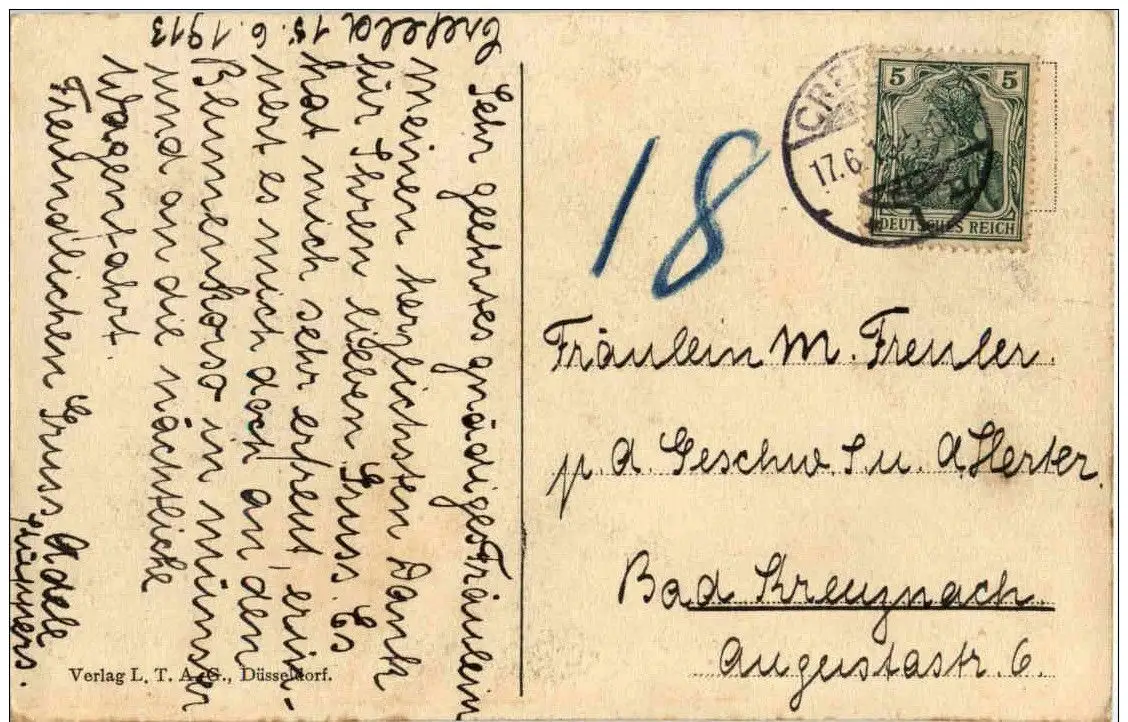 Crefeld 15. 6. 1913
Sehr geehrtes gnädiges Fräulein
Meinen herzlichsten Dank
für Ihren lieben Gruss. Es
hat mich sehr erfreut, erin-
nert es mich doch an den
Blumenkorso in Münster
und an die nächtliche
Wagenfahrt.
Freundlichen Gruss Adele
Küppers.
Verlag L. T. A. G., Düsseldorf.
18
CREFELD
17.6.
5 5
DEUTSCHES REICH
Fräulein M. Freuler.
p. a. Geschw. S. u. A. Herter.
Bad Kreuznach
Augustastr. 6.